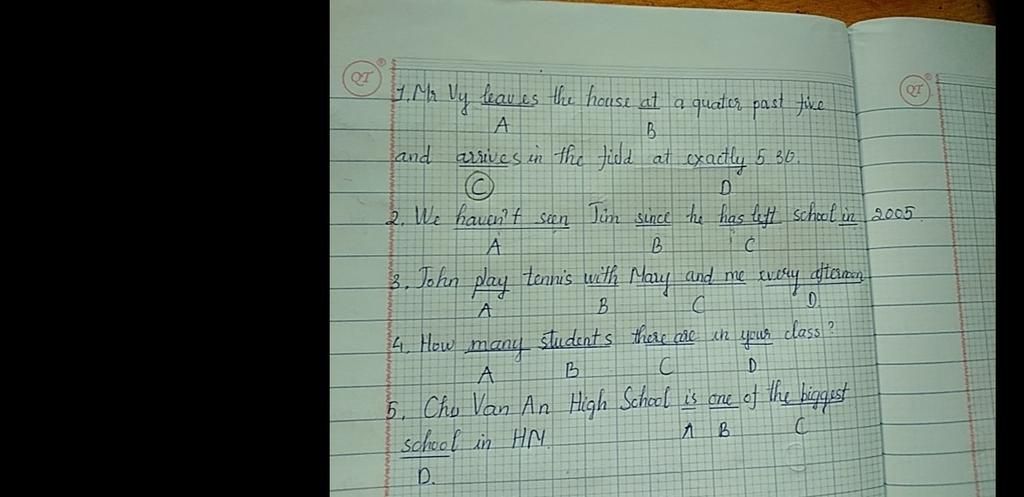 QT
QT
1. Mr Vy leaves the house at a quater past five
A B
and arrives in the field at exactly 5 30.
C D
2. We haven't seen Jim since he has left school in 2005.
A B C
3. John play tennis with Mary and me every afternoon
A B C D.
4. How many students there are in your class?
A B C D
5. Chu Van An High School is one of the biggest
A B C
school in HN.
D.